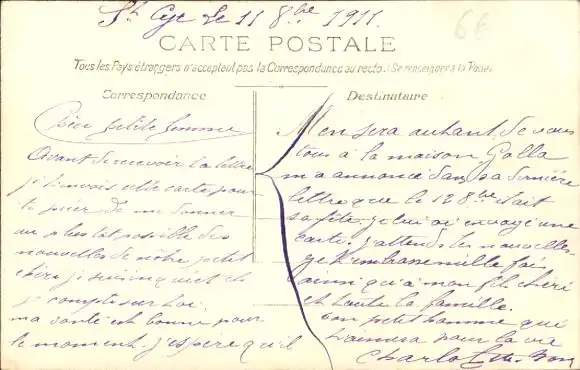 St Cyr Le 11 8bre 1911
66
CARTE POSTALE
Tous les Pays étrangers n'acceptent pas la Correspondance au recto. (Se renseigner à la Poste)
Correspondance
Chère petite femme
Avant de recevoir ta lettre
je t'envoie cette carte pour
te prier de me donner
au plus tot possible des
nouvelles de notre petit
chéri je suis inquiet et
je compte sur toi.
ma santé est bonne pour
le moment. j'espère qu'il
Destinataire
M'en sera autant de vous
tous à la maison
m'a annoncé dans sa dernière
lettre que le 8bre était
sa fête. je lui ai envoyé une
carte. j'attends les nouvelles
je t'embrasse mille fois
ainsi qu'à mon fils chéri
et toute la famille.
ton petit homme qui
t'aimera pour la vie